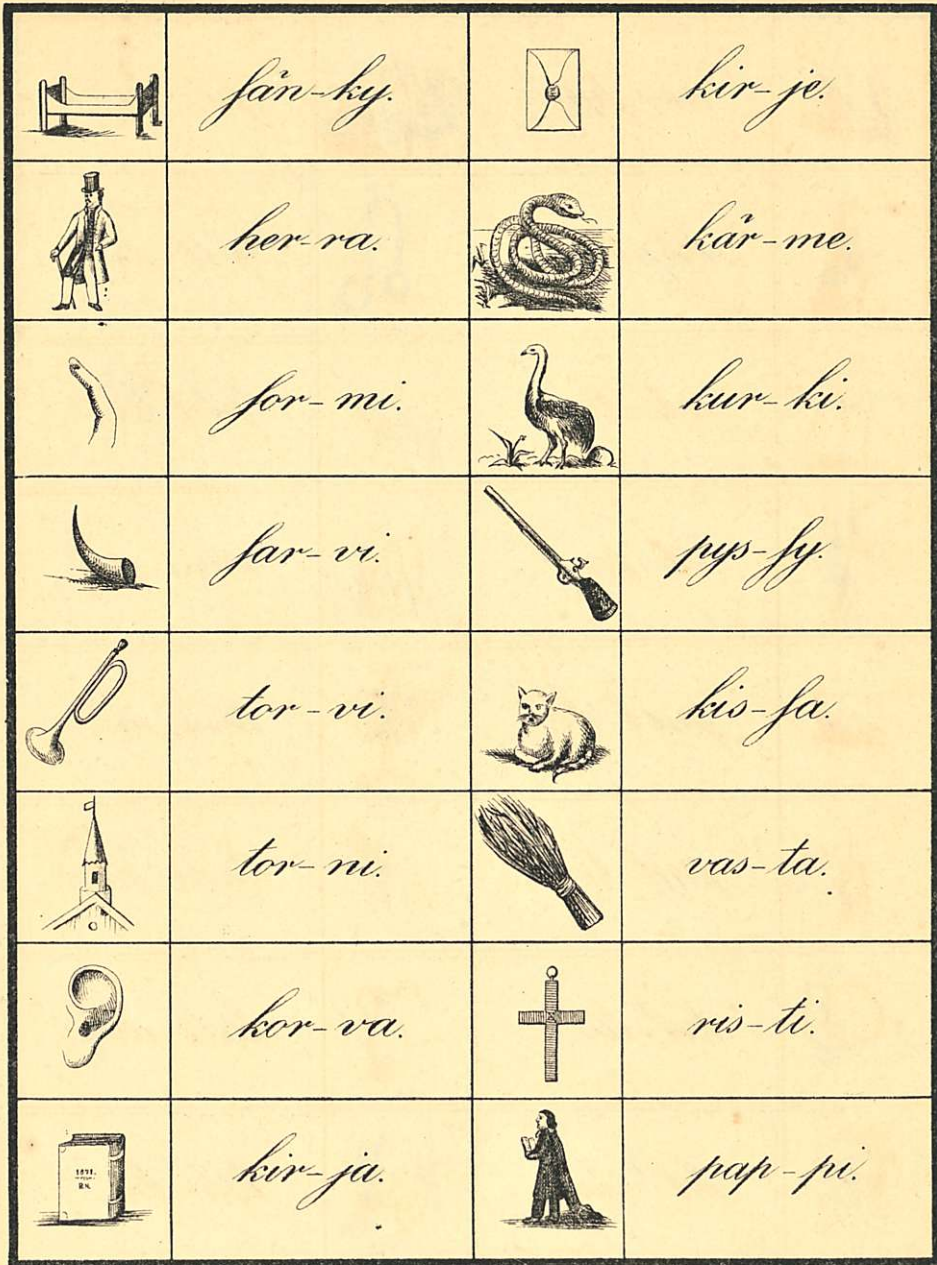 sän-ky. kir-je.
her-ra. kär-me.
sor-mi. kur-ki.
sar-vi. pys-sy.
tor-vi. kis-sa.
tor-ni. vas-ta.
kor-va. ris-ti.
kir-ja. pap-pi.
1871.